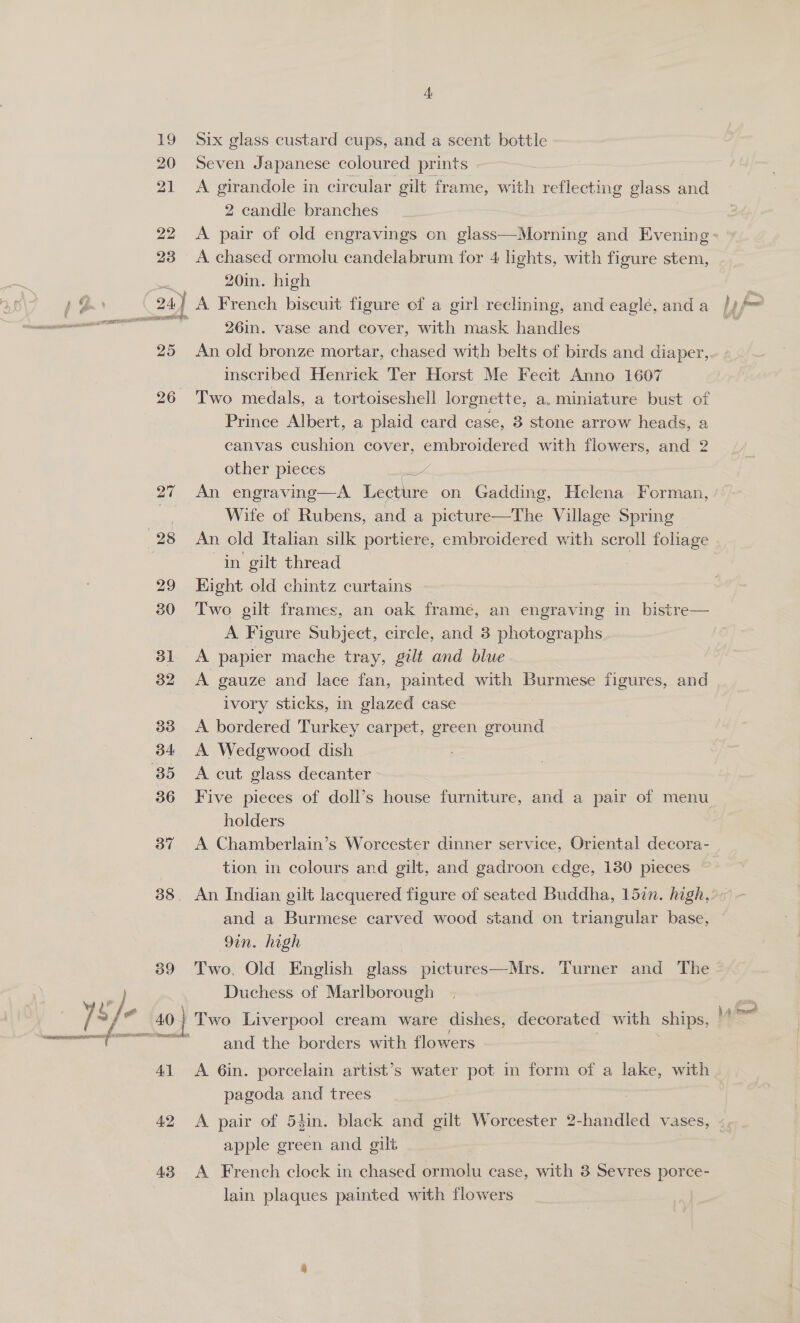 4
19 Six glass custard cups, and a scent bottle
20 Seven Japanese coloured prints
21 A girandole in circular gilt frame, with reflecting glass and
2 candle branches
22 A pair of old engravings on glass—Morning and Evening
23 A chased ormolu candelabrum for 4 lights, with figure stem,
20in. high
24 A French biscuit figure of a girl reclining, and eagle, and a
26in. vase and cover, with mask handles
25 An old bronze mortar, chased with belts of birds and diaper,
inscribed Henrick Ter Horst Me Fecit Anno 1607
26 Two medals, a tortoiseshell lorgnette, a miniature bust of
Prince Albert, a plaid card case, 3 stone arrow heads, a
canvas cushion cover, embroidered with flowers, and 2
other pieces
27 An engraving—A Lecture on Gadding, Helena Forman,
Wife of Rubens, and a picture—The Village Spring
28 An old Italian silk portiere, embroidered with scroll foliage
in gilt thread
29 Eight old chintz curtains
30 Two gilt frames, an oak frame, an engraving in bistre—
A Figure Subject, circle, and 3 photographs
31 A papier mache tray, gilt and blue
32 A gauze and lace fan, painted with Burmese figures, and
ivory sticks, in glazed case
33 A bordered Turkey carpet, green ground
34 A Wedgwood dish
35 A cut glass decanter
36 Five pieces of doll's house furniture, and a pair of menu
holders
37 A Chamberlain's Worcester dinner service, Oriental decora-
tion in colours and gilt, and gadroon edge, 130 pieces
38 An Indian gilt lacquered figure of seated Buddha, 15in. high,
and a Burmese carved wood stand on triangular base,
9in. high
39 Two Old English glass pictures—Mrs. Turner and The
Duchess of Marlborough
40 Two Liverpool cream ware dishes, decorated with ships,
and the borders with flowers
41 A 6in. porcelain artist's water pot in form of a lake, with
pagoda and trees
42 A pair of 5½in. black and gilt Worcester 2-handled vases,
apple green and gilt
43 A French clock in chased ormolu case, with 3 Sevres porce-
lain plaques painted with flowers